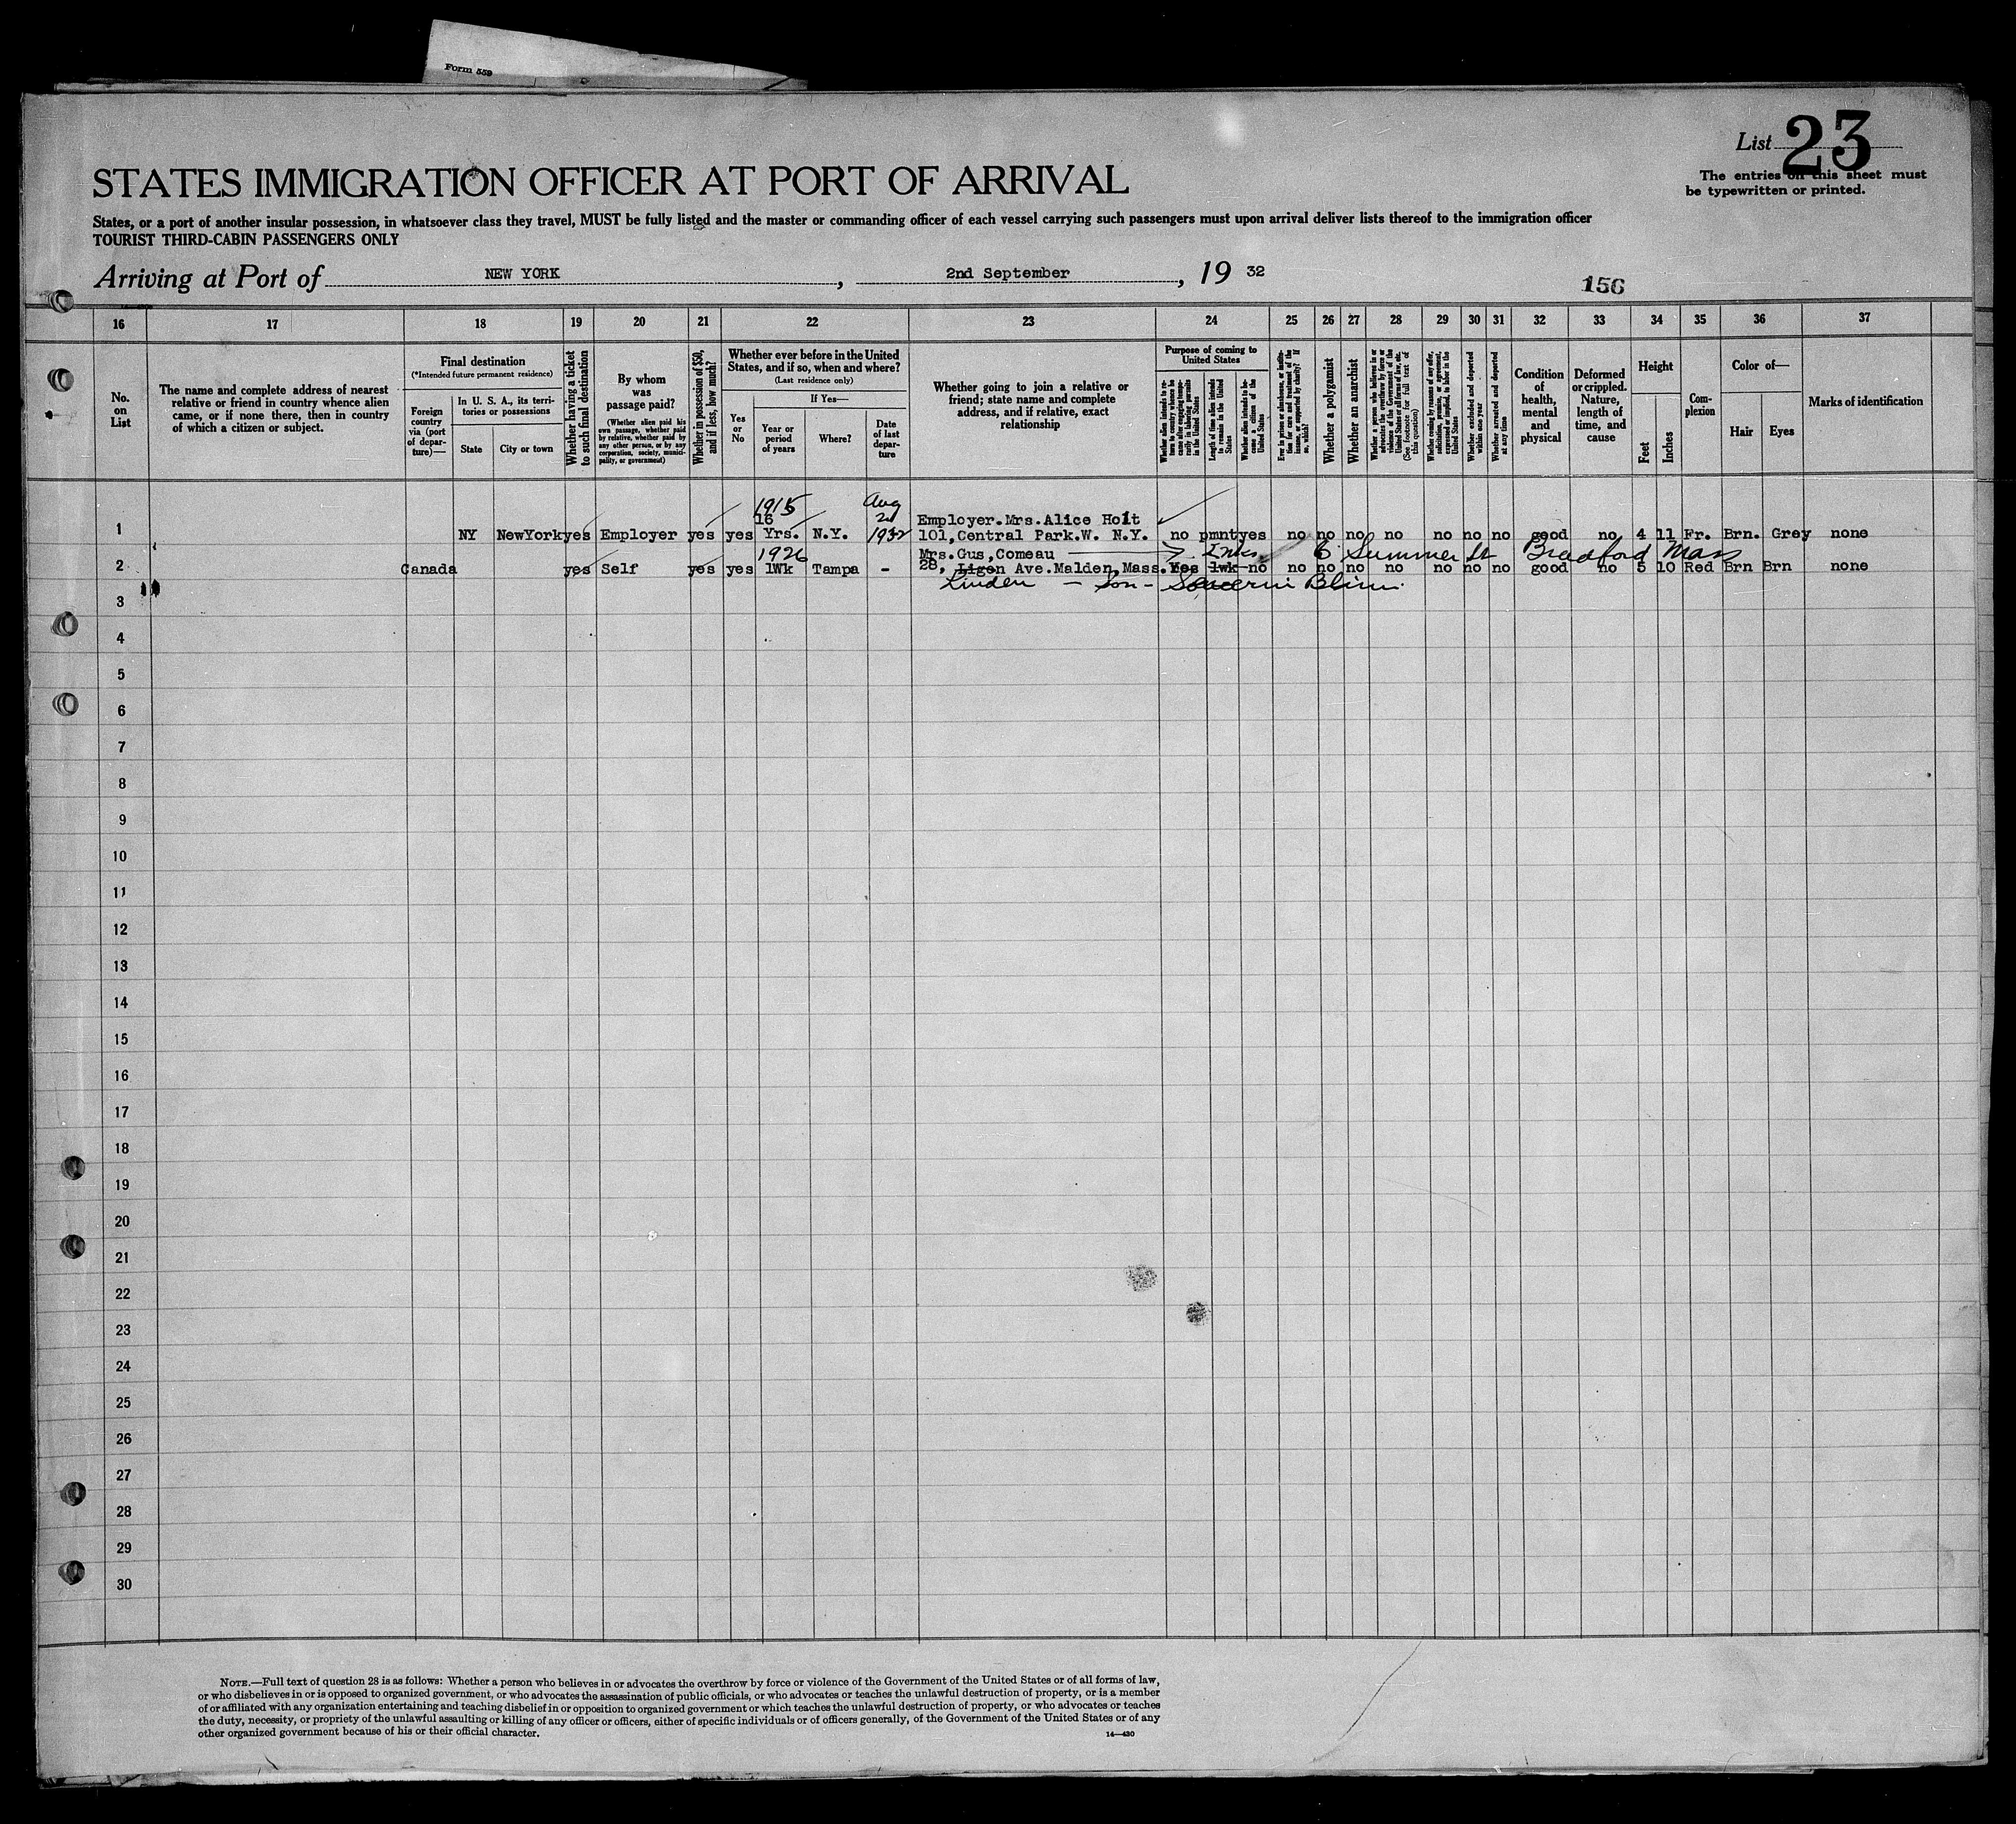 Form 559
List 23
The entries on this sheet must
be typewritten or printed.
STATES IMMIGRATION OFFICER AT PORT OF ARRIVAL
States, or a port of another insular possession, in whatsoever class they travel, MUST be fully listed and the master or commanding officer of each vessel carrying such passengers must upon arrival deliver lists thereof to the immigration officer
TOURIST THIRD-CABIN PASSENGERS ONLY
Arriving at Port of NEW YORK, 2nd September, 19 32
156
16 17 18 19 20 21 22 23 24 25 26 27 28 29 30 31 32 33 34 35 36 37
No.
on
List
The name and complete address of nearest
relative or friend in country whence alien
came, or if none there, then in country
of which a citizen or subject.
Final destination
(*Intended future permanent residence)
Foreign
country
via (port
of depar-
ture)—
In U. S. A., its terri-
tories or possessions
State
City or town
Whether having a ticket
to such final destination
By whom
was
passage paid?
(Whether alien paid his
own passage, whether paid
by relative, whether paid by
any other person, or by any
corporation, society, munici-
pality, or government)
Whether in possession of $50,
and if less, how much?
Whether ever before in the United
States, and if so, when and where?
(Last residence only)
Yes
or
No
If Yes—
Year or
period
of years
Where?
Date
of last
depar-
ture
Whether going to join a relative or
friend; state name and complete
address, and if relative, exact
relationship
Purpose of coming to
United States
Whether alien intends to re-
turn to country whence he
came after engaging tempo-
rarily in laboring pursuits
in the United States
Length of time alien intends
to remain in the United
States
Whether alien intends to be-
come a citizen of the
United States
Ever in prison or almshouse, or institu-
tion for care and treatment of the
insane, or supported by charity? If
so, which?
Whether a polygamist
Whether an anarchist
Whether a person who believes in or
advocates the overthrow by force or
violence of the Government of the
United States or all forms of law, etc.
(See footnote for full text of
this question)
Whether coming by reason of any offer,
solicitation, promise, or agreement,
expressed or implied, to labor in the
United States
Whether excluded and deported
within one year
Whether arrested and deported
at any time
Condition
of
health,
mental
and
physical
Deformed
or crippled.
Nature,
length of
time, and
cause
Height
Feet
Inches
Com-
plexion
Color of—
Hair
Eyes
Marks of identification
1915 Aug
16 2d Employer.Mrs.Alice Holt
1 NY NewYork yes Employer yes yes Yrs. N.Y. 1932 101,Central Park.W. N.Y. no pmnt yes no no no no no no no good no 4 11 Fr. Brn. Grey none
1926 Mrs.Gus,Comeau 6 Summer St Bradford Mass
2 Canada yes Self yes yes 1Wk Tampa - 28, Ligon Ave.Malden,Mass. Yes 1wk no no no no no no no no good no 5 10 Red Brn Brn none
Linden — Son - Blinn.
3
4
5
6
7
8
9
10
11
12
13
14
15
16
17
18
19
20
21
22
23
24
25
26
27
28
29
30
NOTE.—Full text of question 28 is as follows: Whether a person who believes in or advocates the overthrow by force or violence of the Government of the United States or of all forms of law,
or who disbelieves in or is opposed to organized government, or who advocates the assassination of public officials, or who advocates or teaches the unlawful destruction of property, or is a member
of or affiliated with any organization entertaining and teaching disbelief in or opposition to organized government or which teaches the unlawful destruction of property, or who advocates or teaches
the duty, necessity, or propriety of the unlawful assaulting or killing of any officer or officers, either of specific individuals or of officers generally, of the Government of the United States or of any
other organized government because of his or their official character.
14—430